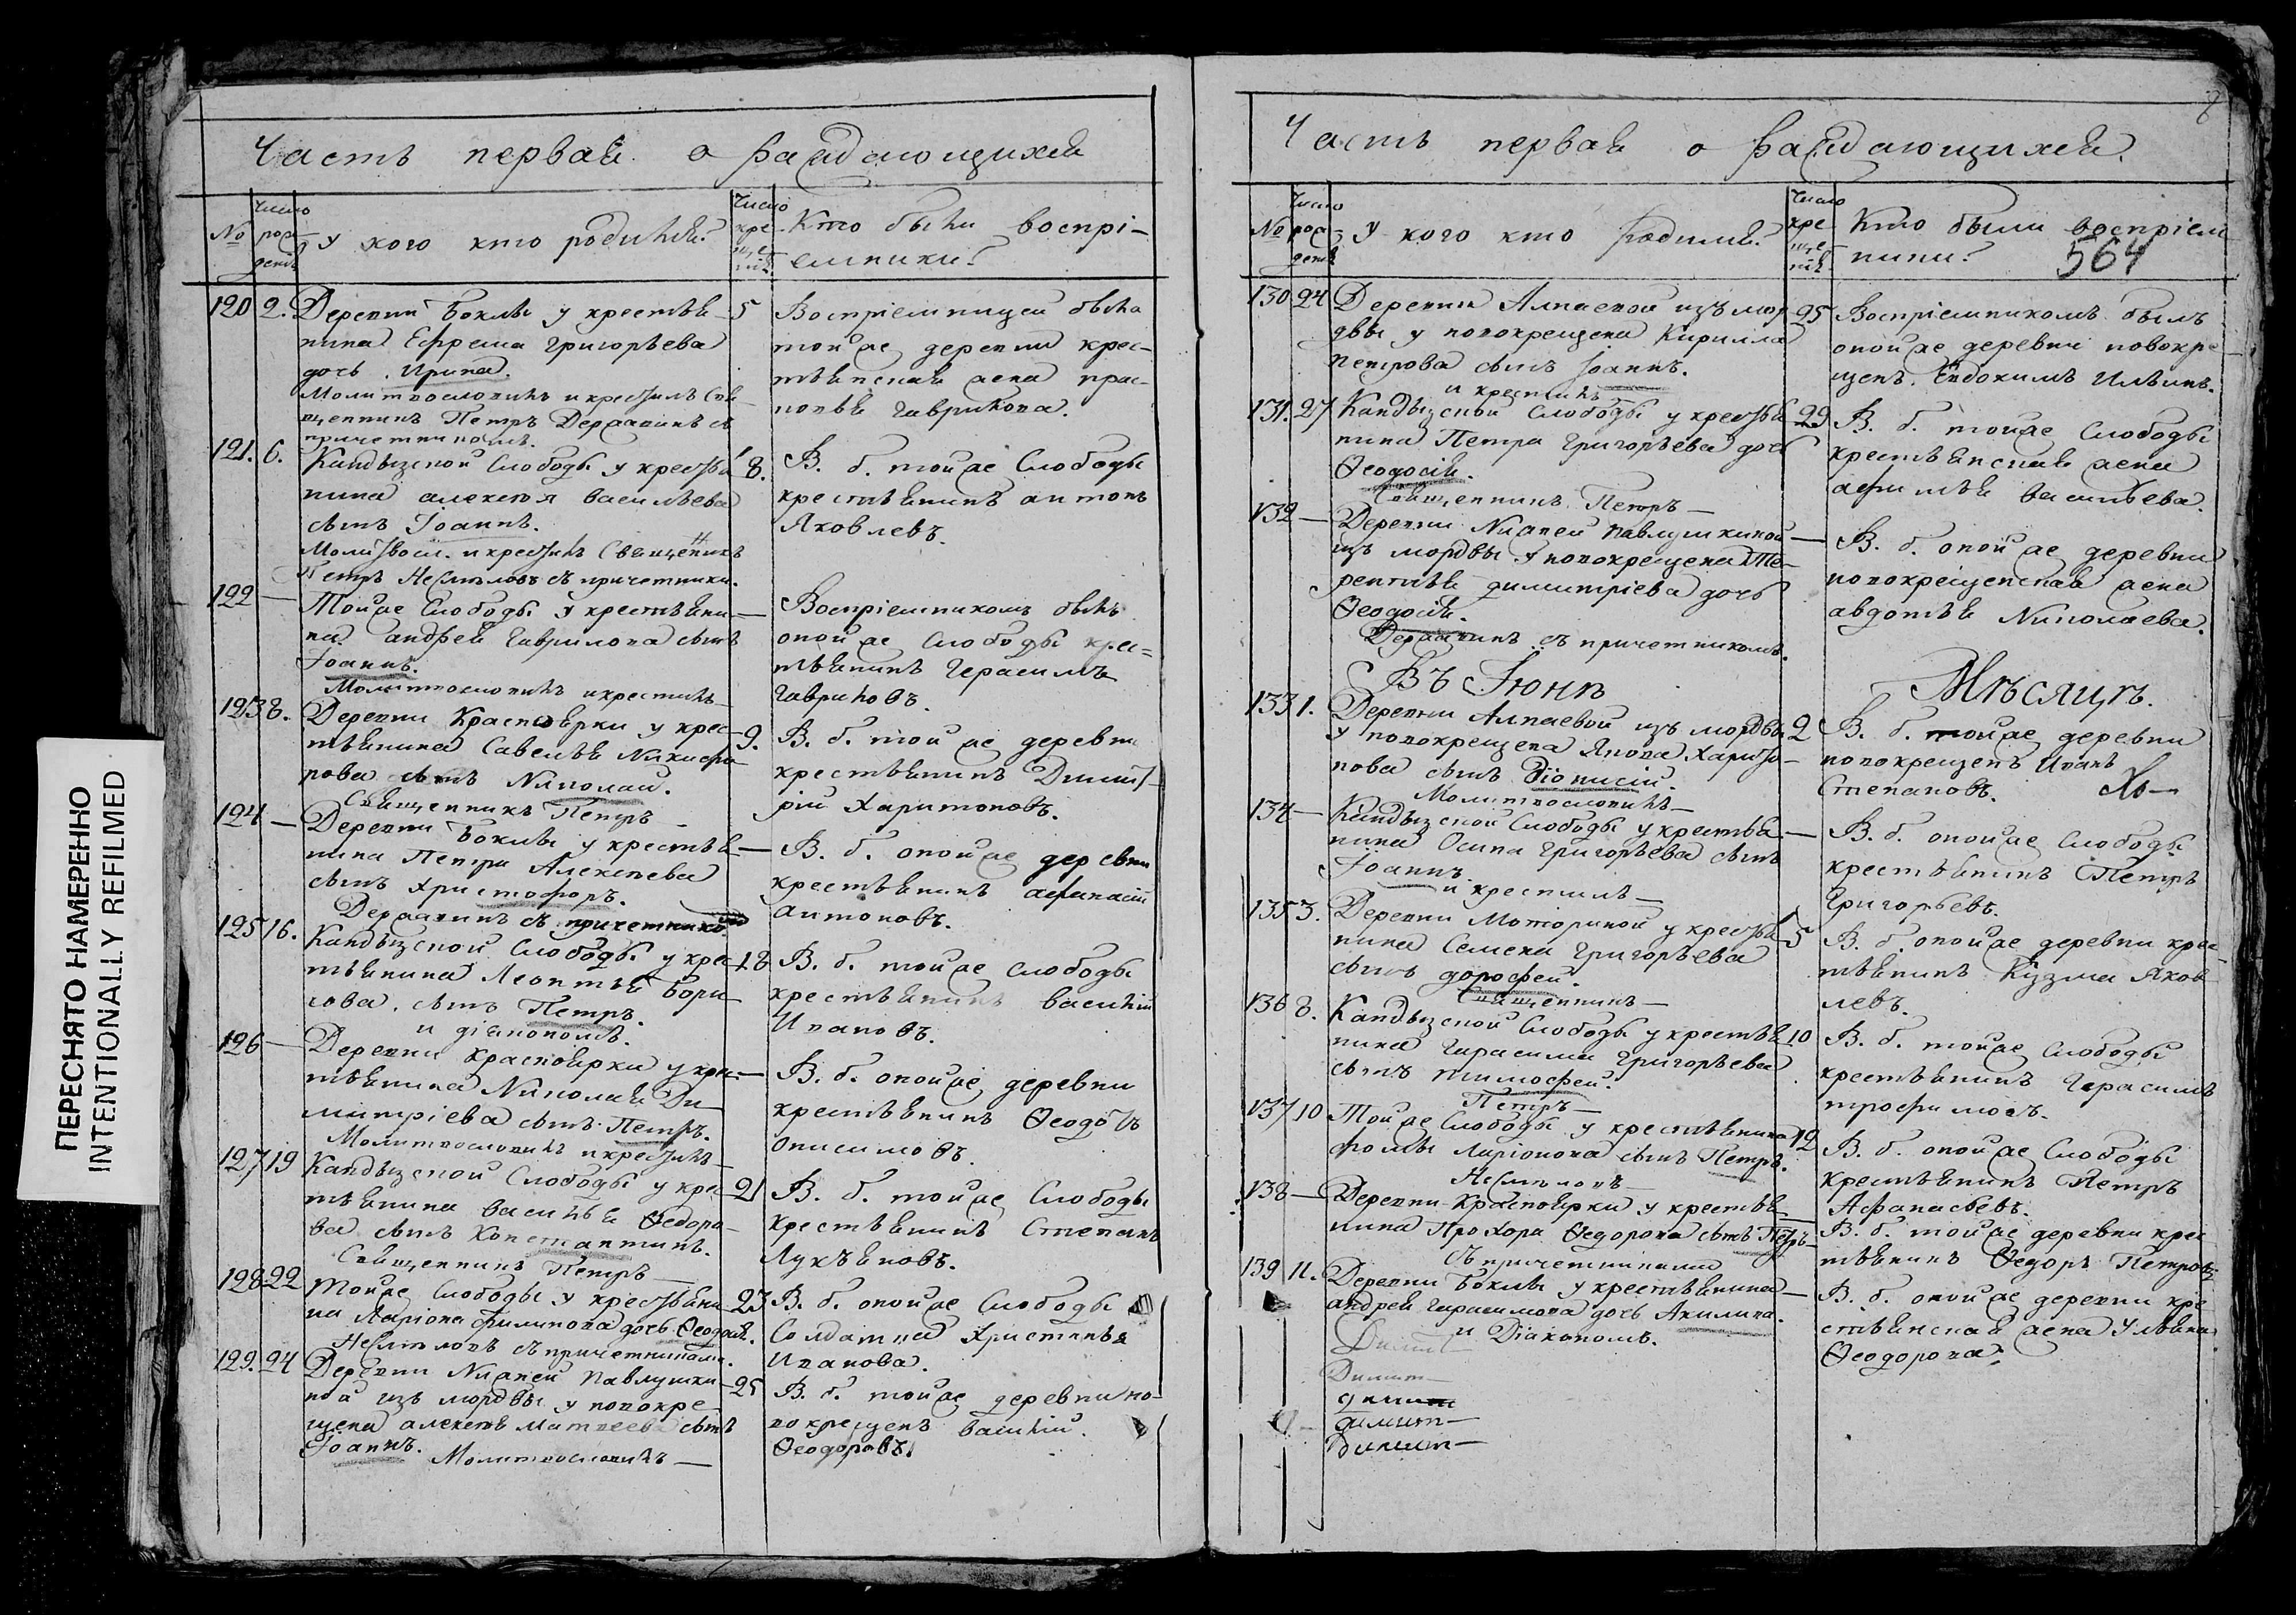 ПЕРЕСНЯТО НАМЕРЕННО
INTENTIONALLY REFILMED
Часть первая о раждающихся
№
Число рождения
У кого кто родился?
Число крещения
Кто были воспрі-
емники?
120 2. Деревни Боклы у крестья- 5
нина Ефрема Григорьева
дочь Ирина.
Молитвословилъ и крестилъ Свя-
щенникъ Петръ Державинъ съ
причетникомъ.
Воспріемницей была
той же деревни крес-
тьянская жена Прас-
ковья Гаврилова.
121. 6. Кандызской Слободы у крестья- 8.
нина Алексея Васильева
сынъ Іоаннъ.
Молитвосл. и крестилъ Священникъ
Петръ Несмѣловъ съ причетники.
В. б. той же Слободы
крестьянинъ Антонъ
Яковлевъ.
122 — Той же Слободы у крестьяни- —
на Андрея Гаврилова сынъ
Іоаннъ.
Молитвословилъ и крестилъ —
Воспріемникомъ былъ
оной же Слободы крес=
тьянинъ Герасимъ
Гавриловъ.
123 8. Деревни Красноярки у крес- 9.
тьянина Савелья Никифо-
рова сынъ Николай.
Священникъ Петръ —
В. б. той же деревни
крестьянинъ Димит-
рій Харитоновъ.
124 — Деревни Боклы у крестья- —
нина Петра Алексеева
сынъ Христофоръ.
Державинъ съ причетником
В. б. оной же деревни
крестьянинъ Афанасій
Антоновъ.
125 16. Кандызской Слободы у крес- 18
тьянина Леонтья Бори-
сова сынъ Петръ.
и діакономъ.
В. б. той же Слободы
крестьянинъ Василій
Ивановъ.
126 — Деревни Красноярки у крес- —
тьянина Николая Ди-
митріева сынъ Петръ.
Молитвословилъ и крестилъ —
В. б. оной же деревни
крестьянинъ Ѳеодотъ
Онисимовъ.
127 19 Кандызской Слободы у крес- 21
тьянина Василья Ѳедоро-
ва сынъ Константинъ.
Священникъ Петръ —
В. б. той же Слободы
крестьянинъ Степанъ
Лукъяновъ.
128 22 Той же Слободы у крестьяни- 23
на Ларіона Филипова дочь Ѳеодосія.
Несмѣловъ съ причетниками.
В. б. оной же Слободы
Солдатка Христинья
Иванова.
129. 24 Деревни Нижней Павлушки- 25
ной изъ мордвы у новокре-
щена Алексея Матвеева сынъ
Іоаннъ. Молитвословилъ —
В. б. той же деревни но-
вокрещенъ Василій
Ѳеодоровъ.
Часть первая о раждающихся.
№
Число рождения
У кого кто родился?
Число крещения
Кто были воспріем
ники?
564
130 24 Деревни Алпаевой изъ мор- 25
двы у новокрещена Кирилла
Петрова сынъ Іоаннъ.
и крестилъ —
Воспріемникомъ былъ
оной же деревни новокре-
щенъ Евдокимъ Ильинъ.
131. 27 Кандызской Слободы у крестья- 29
нина Петра Григорьева дочь
Ѳеодосія.
Священникъ Петръ —
В. б. той же Слободы
крестьянская жена
Афимья Васильева.
132 — Деревни Нижней Павлушкиной —
изъ мордвы у новокрещена Те-
рентья Димитріева дочь
Ѳеодосія.
Державинъ съ причетникомъ.
В. б. оной же деревни
новокрещенская жена
Авдотья Николаева.
Въ Іюнѣ Мѣсяцѣ.
133 1. Деревни Алпаевой изъ мордвы 2
у новокрещена Якова Харито-
нова сынъ Діонисій.
Молитвословилъ —
В. б. той же деревни
новокрещенъ Иванъ
Степановъ.
134 — Кандызской Слободы у крестья- —
нина Осипа Григорьева сынъ
Іоаннъ.
и крестилъ —
В. б. оной же Слободы
крестьянинъ Петръ
Григорьевъ.
135 3. Деревни Моториной у крестья- 5
нина Семена Григорьева
сынъ Дорофей.
Священникъ —
В. б. оной же деревни крес-
тьянинъ Кузма Яков
левъ.
136 8. Кандызской Слободы у крестья- 10
нина Гарасима Григорьева
сынъ Тимофей.
Петръ —
В. б. той же Слободы
крестьянинъ Герасимъ
Трофимовъ.
137 10 Той же Слободы у крестьянина 12
Фомы Ларіонова сынъ Петръ.
Несмѣловъ —
В. б. оной же Слободы
крестьянинъ Петръ
Афанасьевъ.
138 — Деревни Красноярки у крестья-
нина Прохора Ѳедорова сынъ Петръ —
съ причетниками
В. б. той же деревни крес-
тьянинъ Ѳедоръ Петровъ.
139 11. Деревни Боклы у крестьянина —
Андрея Гарасимова дочь Акилина.
и Діакономъ.
В. б. оной же деревни кре-
стьянская жена Ульяна
Ѳеодорова.
Димит—
Димит—
димит
димит—
Димит—